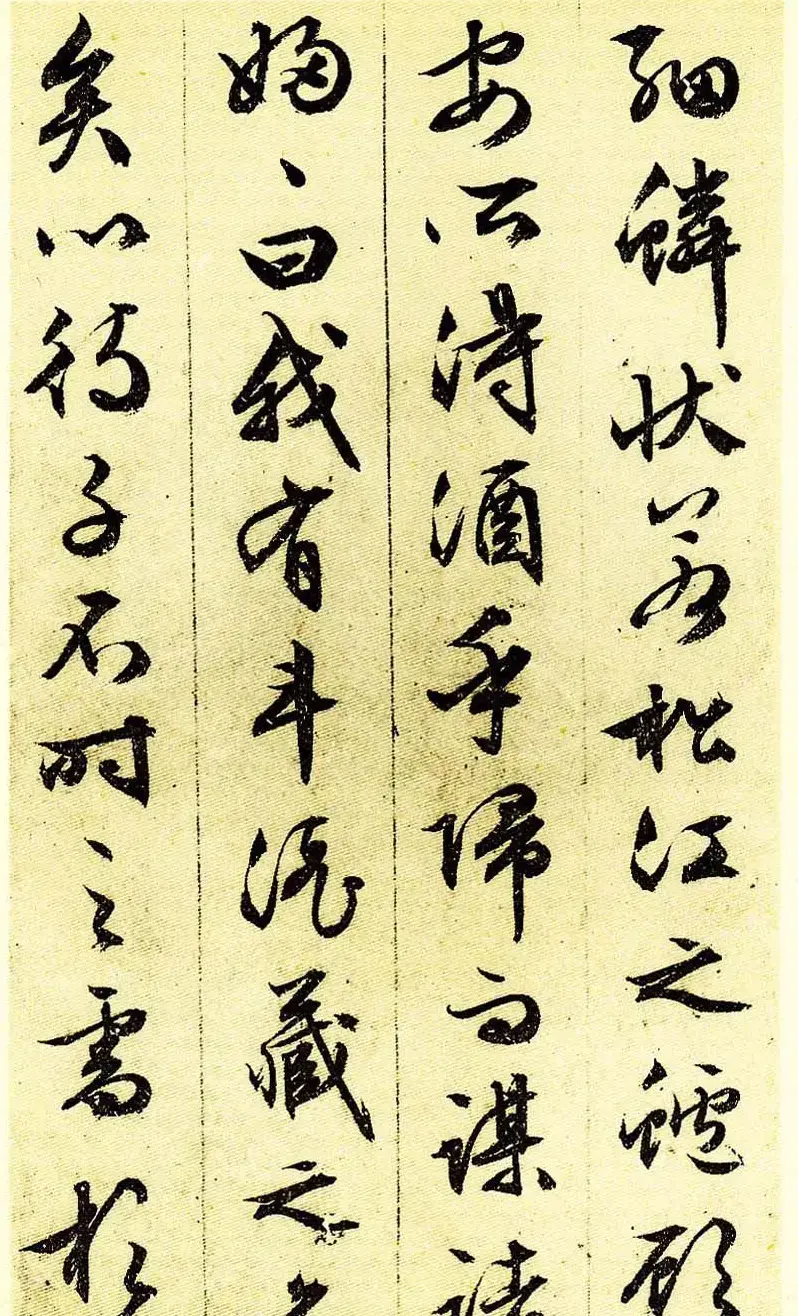 細鱗狀若松江之鱸顧
安所得酒乎歸而謀諸
婦〻曰我有斗酒藏之久
矣以待子不時之需於